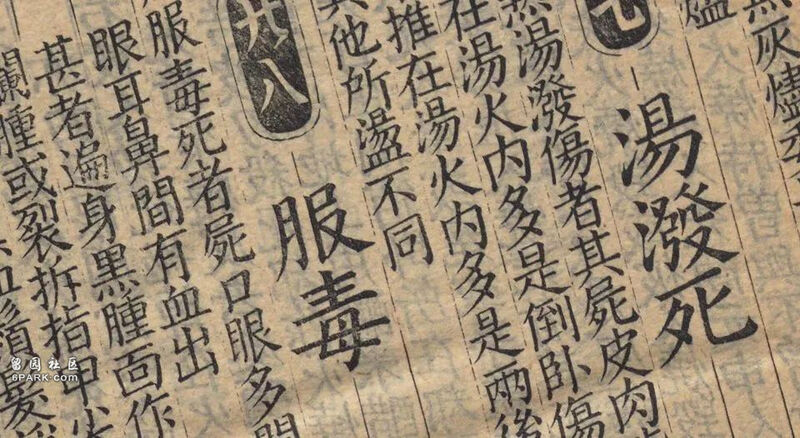 無灰燼委
燼
七
湯潑死
熱湯潑傷者其屍皮肉
在湯火内多是倒卧傷
推在湯火内多是兩後
其他所盪不同
廿八
服毒
服毒死者屍口眼多開
眼耳鼻間有血出
甚者遍身黑腫面作
爛腫或裂拆指甲尖
血鬚髮
留园社区
6PARK.com